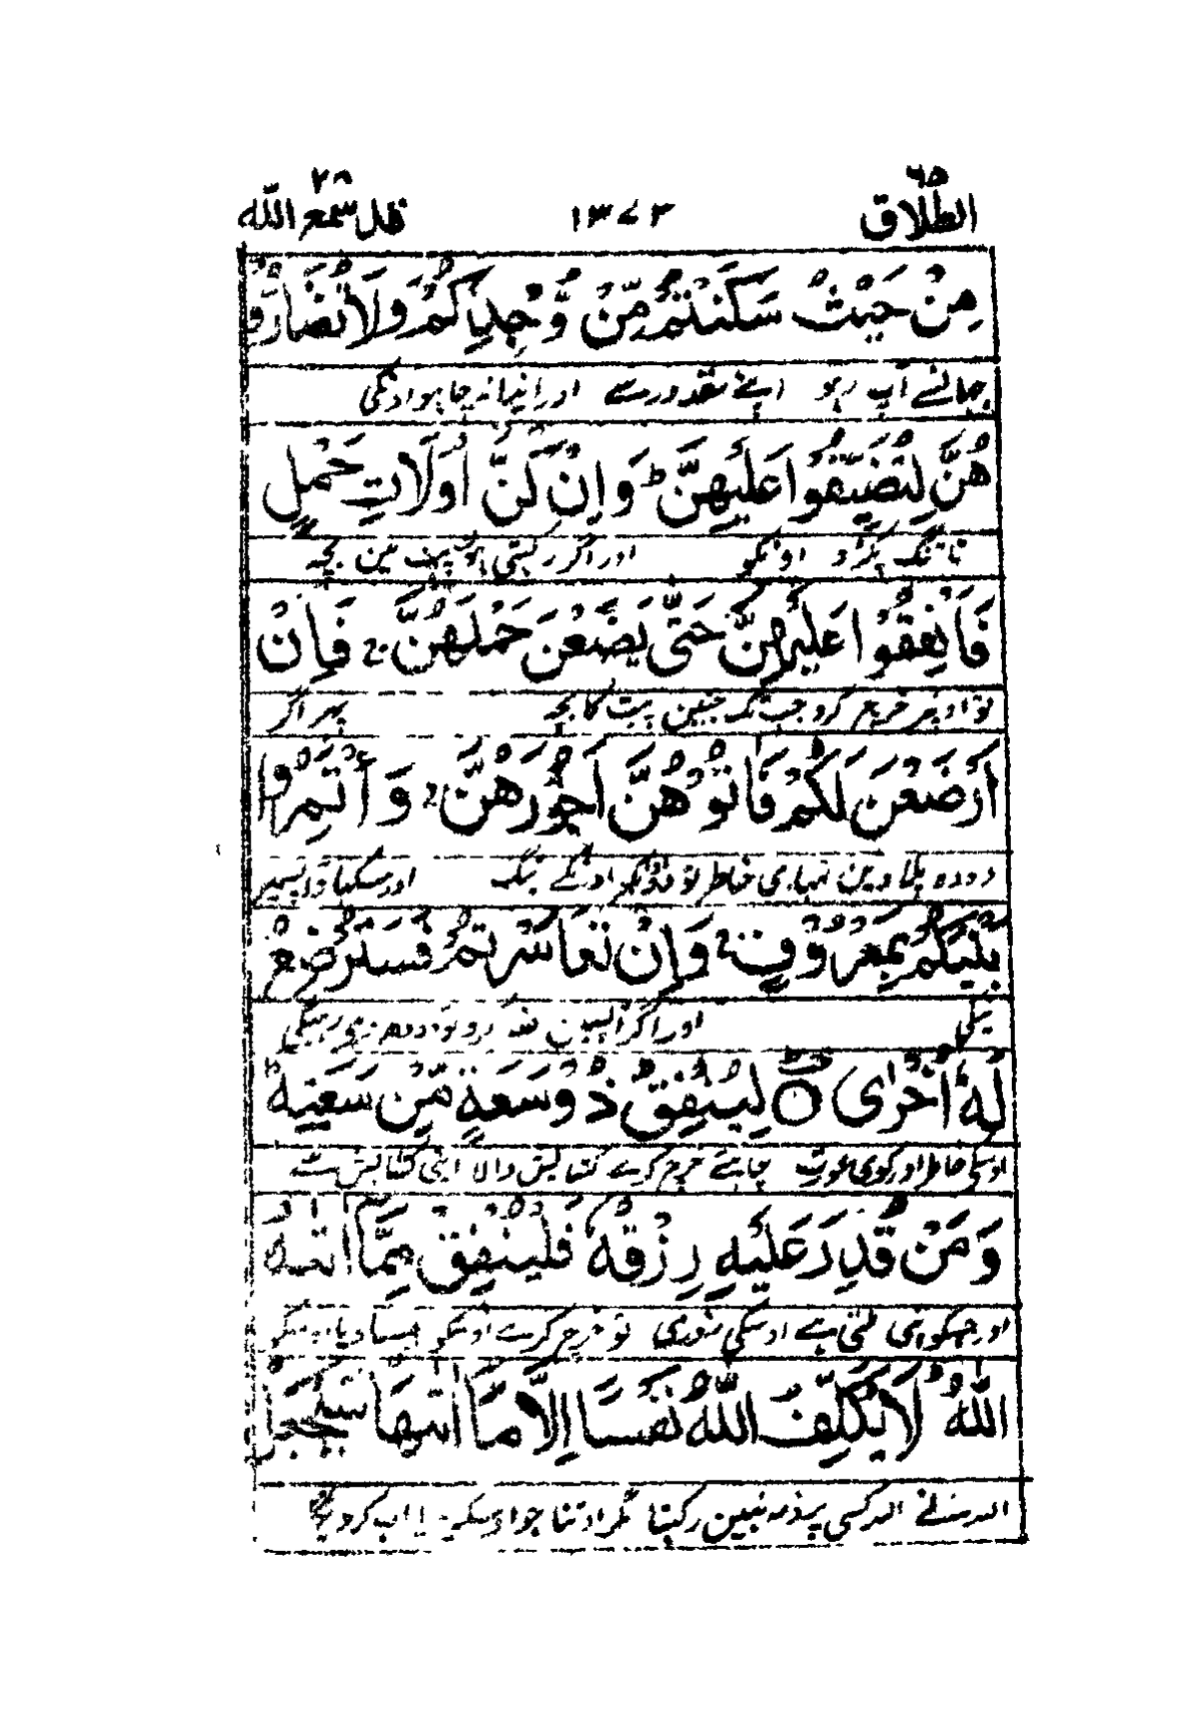 الطلاق ٦٥
١٣٧٣
قد سمع الله ٢٨
مِنْ حَيْثُ سَكَنْتُمْ مِّنْ وُّجْدِكُمْ وَلَا تُضَارُّوْ
جہانسے آپ رہو اپنے مقدور سے اور ایذا نہ چاہو اونکی
هُنَّ لِتُضَيِّقُوْا عَلَيْهِنَّ ؕ وَاِنْ كُنَّ اُولَاتِ حَمْلٍ
تا تنگ پکڑو اونکو اور اگر رکہتی ہوں پیٹ مین بچہ
فَاَنْفِقُوْا عَلَيْهِنَّ حَتّٰى يَضَعْنَ حَمْلَهُنَّ ۚ فَاِنْ
تو اونپر خرچ کرو جب تک جنین پیٹ کا بچہ پہر اگر
اَرْضَعْنَ لَكُمْ فَاٰتُوْهُنَّ اُجُوْرَهُنَّ ۚ وَاْتَمِرُوْا
دودہ پلا دین تمہاری خاطر تو دو اونکو اونکے نیگ اور سکہاؤ آپسمین
بَيْنَكُمْ بِمَعْرُوْفٍ ۚ وَاِنْ تَعَاسَرْتُمْ فَسَتُرْضِعُ
نیکی اور اگر آپسین ضد کرو تو دودھ دی رہیگی
لَهٗۤ اُخْرٰى ۝ لِيُنْفِقْ ذُوْ سَعَةٍ مِّنْ سَعَتِهٖ ؕ
اوسکی خاطر اور کوی عورت چاہئے خرچ کرے کشایش والا اپنی کشایش سے
وَمَنْ قُدِرَ عَلَيْهِ رِزْقُهٗ فَلْيُنْفِقْ مِمَّاۤ اٰتٰىهُ
اور جسکو نپی ملتی ہے اوسکی روزی تو خرچ کرے جیسا دیا اوسکو
اللّٰهُ ؕ لَا يُكَلِّفُ اللّٰهُ نَفْسًا اِلَّا مَاۤ اٰتٰىهَا سَيَجْعَلُ
اللہ نے اللہ کسی پر ذمہ نہین رکہتا مگر اوتنا جو اوسکو دیا اب کر دیگا